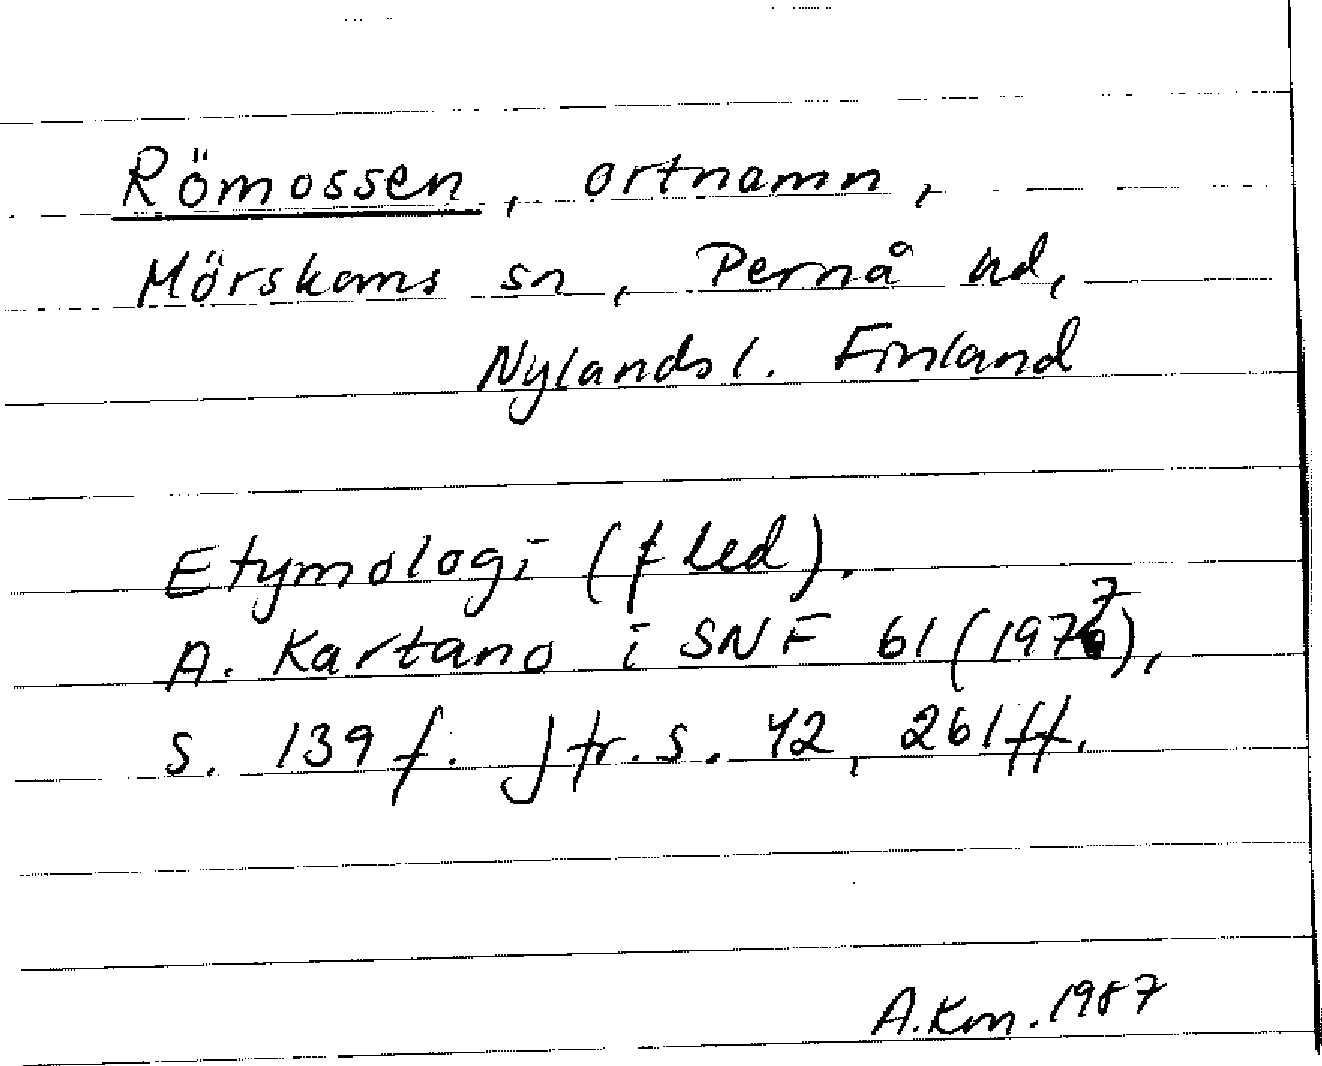 Römossen, ortnamn,
Mörskoms sn, Pernå hd,
Nylands l. Finland
Etymologi (f led).
A. Kartano i SNF 61 (1977),
s. 139 f. Jfr. s. 42, 261 ff.
A.Km. 1987